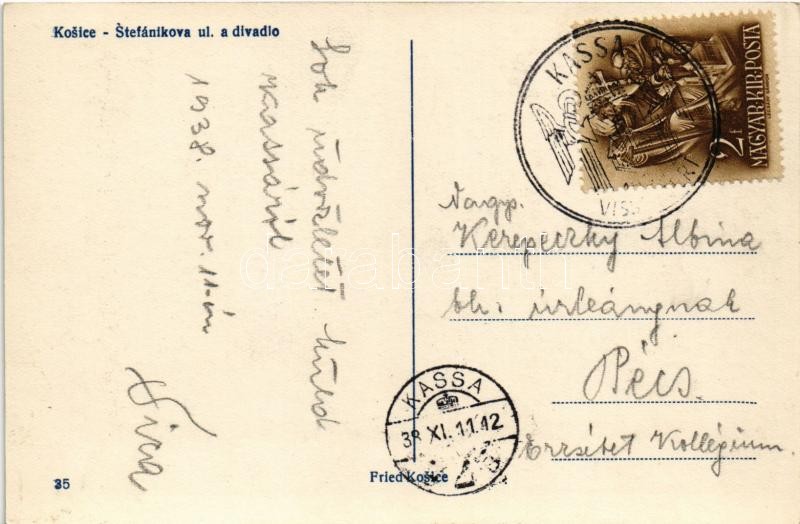 Košice - Štefánikova ul. a divadlo
Sok üdvözletet küld
Kassáról
1938. nov. 11-én
KASSA
VISSZATÉRT
2 f
MAGYAR KIR. POSTA
Nagys.
Kerepeczky Albina
úrleánynak
Pécs.
Erzsébet Kollégium.
KASSA
38 XI. 11. 12
Fried Košice
35
darabanth